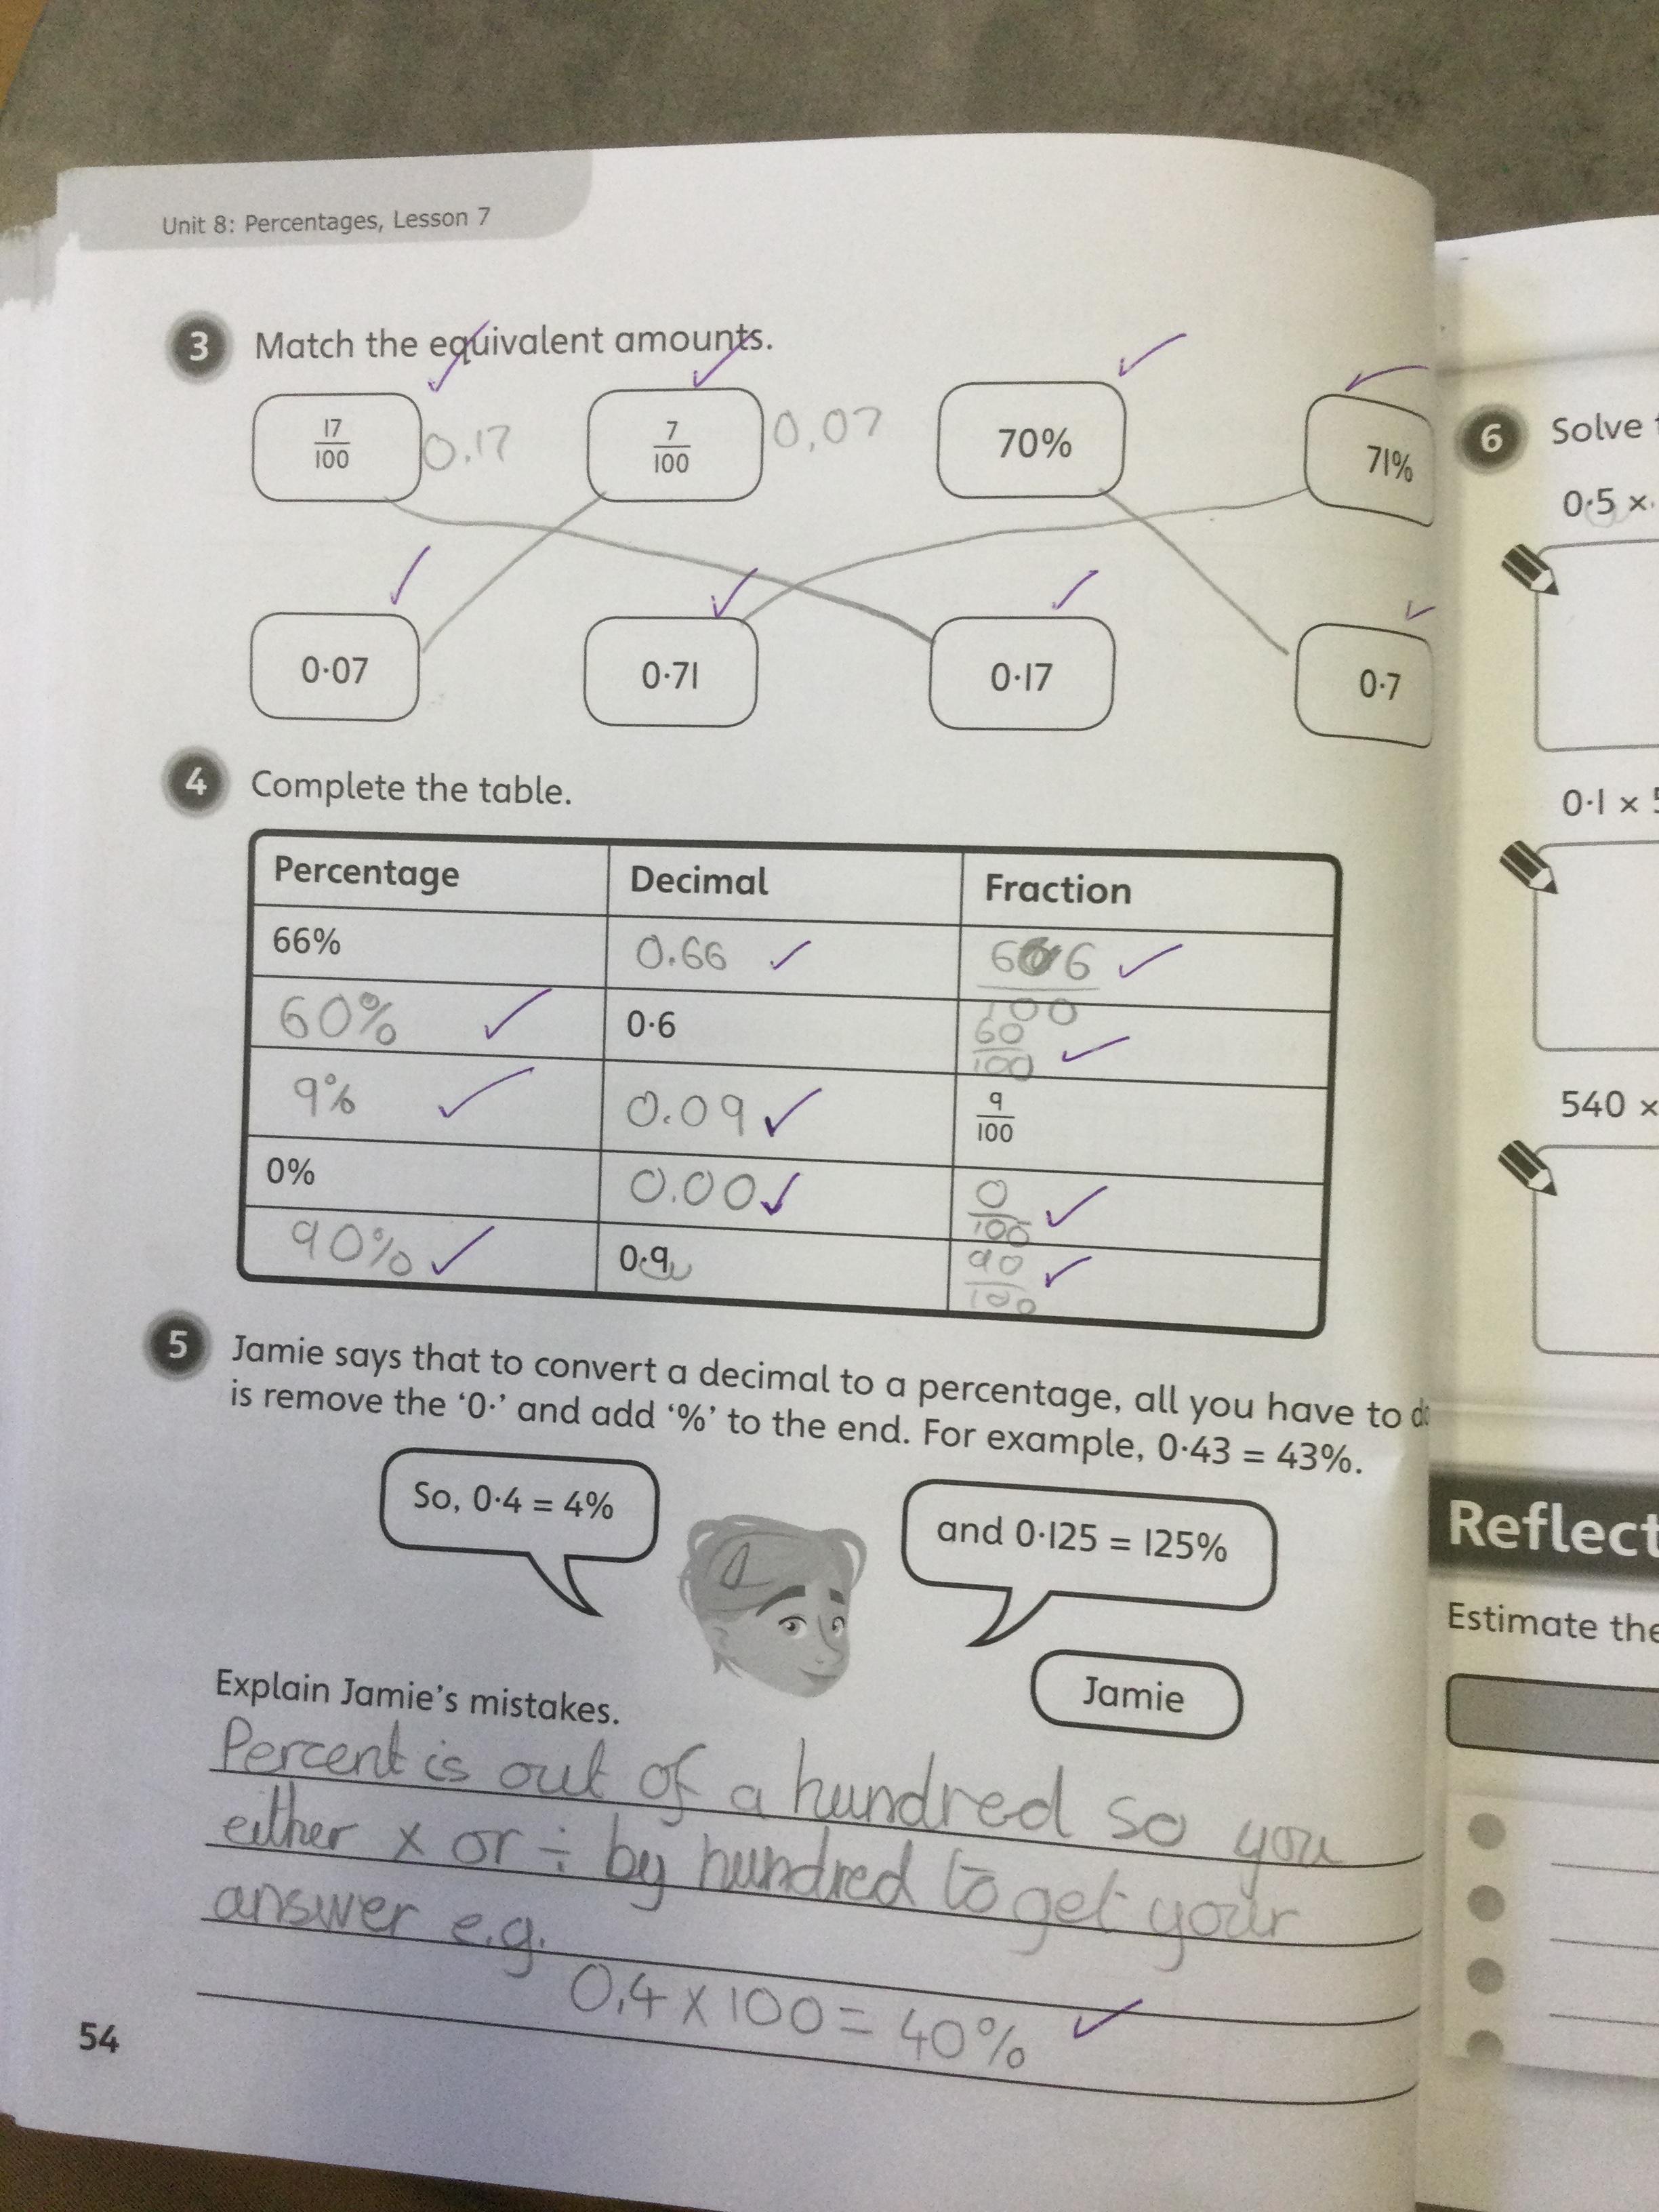 Unit 8: Percentages, Lesson 7
3 Match the equivalent amounts.
17/100 0.17 7/100 0.07 70% 71%
0·07 0·71 0·17 0·7
4 Complete the table.
Percentage Decimal Fraction
66% 0.66 66/100
60% 0·6 60/100
9% 0.09 9/100
0% 0.00 0/100
90% 0·9 90/100
5 Jamie says that to convert a decimal to a percentage, all you have to do
is remove the ‘0·’ and add ‘%’ to the end. For example, 0·43 = 43%.
So, 0·4 = 4%
and 0·125 = 125%
Jamie
Explain Jamie’s mistakes.
Percent is out of a hundred so you
either x or ÷ by hundred to get your
answer e.g.
0.4 x 100 = 40%
54
6 Solve
0·5 ×
0·1 × 5
540 ×
Reflect
Estimate the